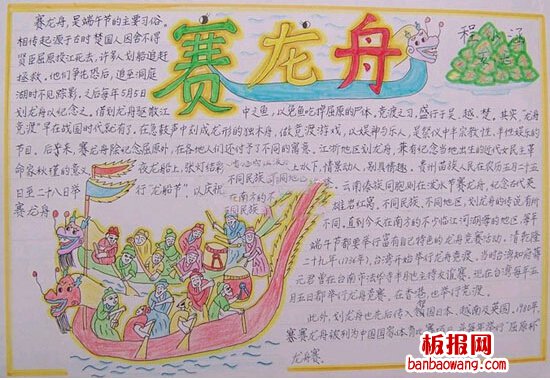 赛龙舟
赛龙舟,是端午节的主要习俗。
相传起源于古时楚国人因舍不得
贤臣屈原投江死去,许多人划船追赶
拯救。他们争先恐后,追至洞庭
湖时不见踪影,之后每年5月5日
划龙舟以纪念之。借划龙舟驱散江
中之鱼,以免鱼吃掉屈原的尸体。竞渡之习,盛行于吴、越、楚。其实,"龙舟
竞渡"早在战国时代就有了。在急鼓声中刻成龙形的独木舟,做竞渡游戏,以娱神与乐人,是祭仪中半宗教性、半娱乐的
节目。后来,赛龙舟除纪念屈原外,在各地人们还付予了不同的寓意。江浙地区划龙舟,兼有纪念当地出生的近代女民主革
命家秋瑾的意义。夜龙船上,张灯结彩
上水下,情景动人,别具情趣。贵州苗族人民在农历五月二十五
日至二十八日举行"龙船节",以庆祝
云南傣族同胞则在泼水节赛龙舟,纪念古代英
赛龙舟
雄岩红窝。不同民族、不同地区,划龙舟的传说有所
不同。直到今天在南方的不少临江河湖海的地区,每年
端午节都要举行富有自己特色的龙舟竞赛活动。清乾隆
二十九年(1736年),台湾开始举行龙舟竞渡。当时台湾知府蒋
元君曾在台南市法华寺半月池主持友谊赛。现在台湾每年五
月五日都举行龙舟竞赛。在香港,也举行竞渡。
此外,划龙舟也先后传入
国日本、越南及英国。1980年,
赛龙舟被列为中国国家体育
赛
并每年举行"屈原杯"
龙舟赛。
板报网
banbaowang.com